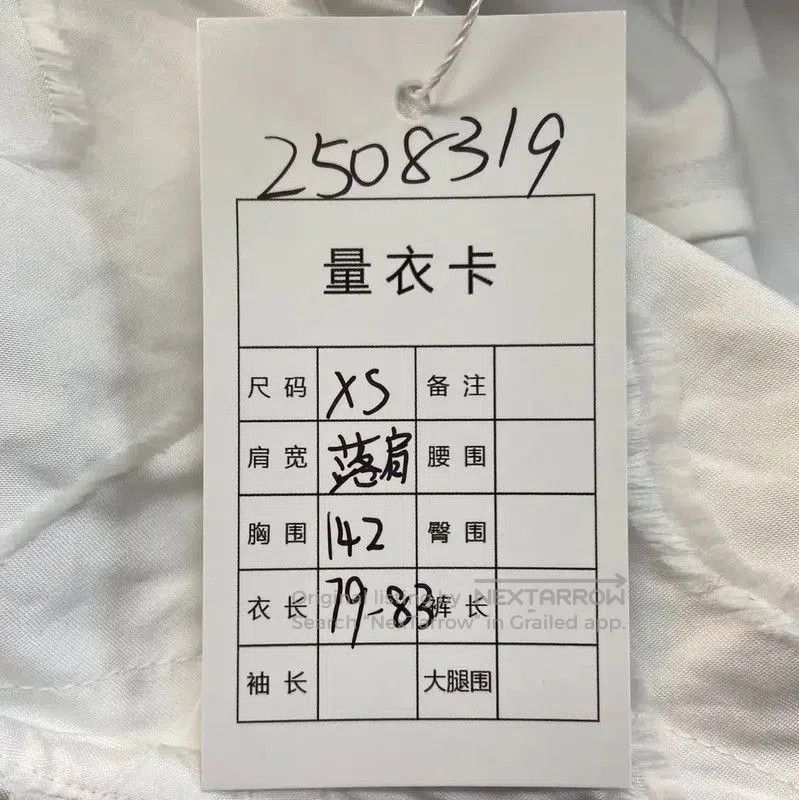 2508319
量衣卡
尺码 XS 备注
肩宽 落肩 腰围
胸围 142 臀围
衣长 79-83 裤长
Original listing by NEXTARROW
Search "NexTarrow" in Grailed app.
袖长 大腿围